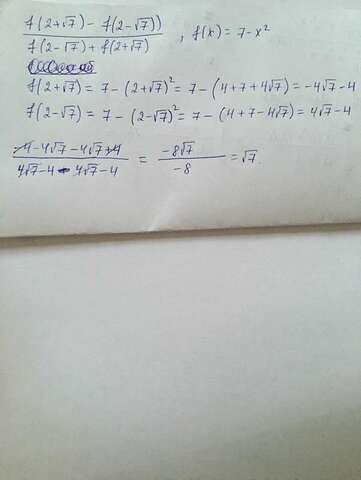 f(2+√7) - f(2-√7)) / f(2-√7) + f(2+√7) , f(x) = 7-x²
f(2+√7) = 7 - (2+√7)² = 7 - (4+7+4√7) = -4√7-4
f(2-√7) = 7 - (2-√7)² = 7 - (4+7-4√7) = 4√7-4
-4-4√7-4√7+4 / 4√7-4-4√7-4 = -8√7 / -8 = √7